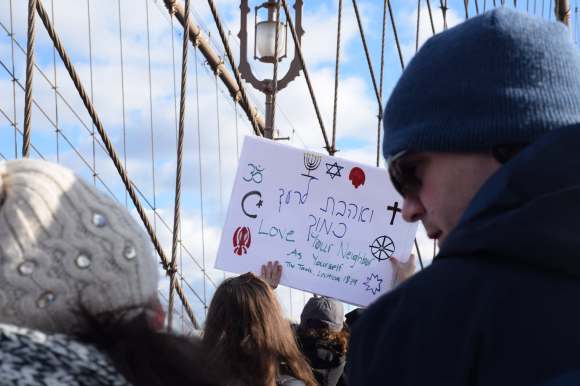 ואהבת לרעך
כמוך
Love Your Neighbor
As Yourself
The Torah, Leviticus 19:18